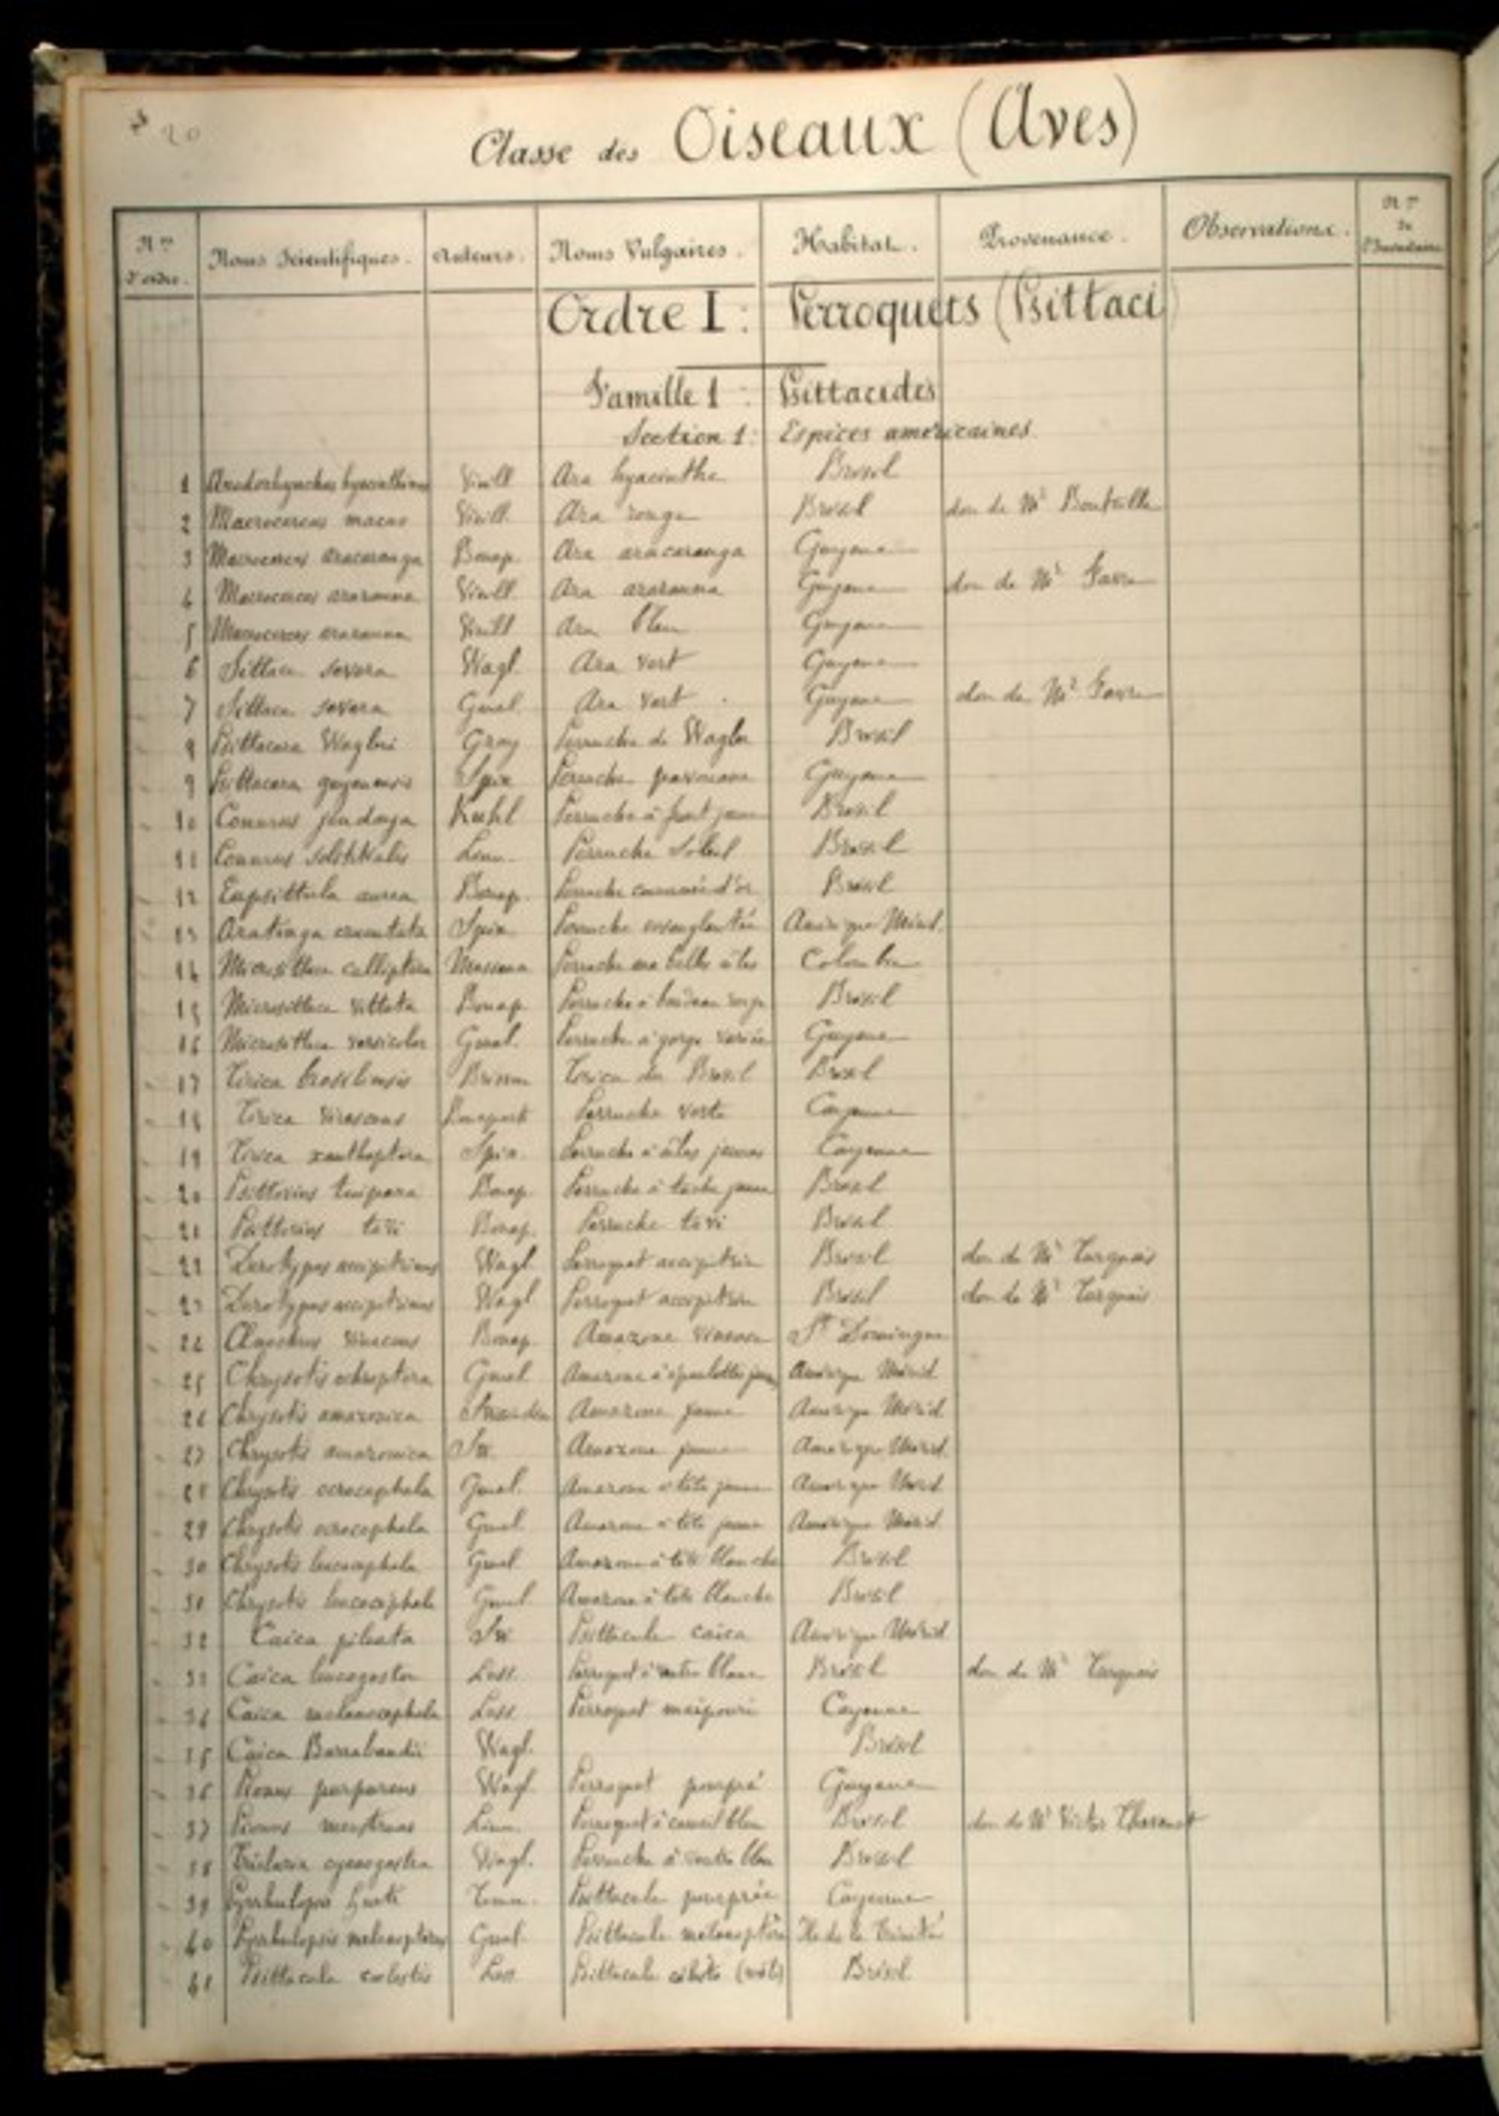 20
Classe des Oiseaux (Aves)
Nos d'ordre. Noms Scientifiques. Auteurs. Noms Vulgaires. Habitat. Provenance. Observations. No de l'Inventaire
Ordre I : Perroquets (Psittaci)
Famille 1 : Psittacidés
Section 1 : Espèces américaines
1 Anodorhynchus hyacinthinus Vieill Ara hyacinthe Brésil
2 Macrocercus macao Vieill. Ara rouge Brésil don de Mr Bouteille
3 Macrocercus aracaranga Bonap. Ara aracaranga Guyane
4 Macrocercus ararauna Vieill Ara ararauna Guyane don de Mr Favre
5 Macrocercus ararauna Vieill Ara bleu Guyane
6 Sittace severa Wagl. Ara vert Guyane
7 Sittace severa Gmel. Ara vert Guyane don de Mr Favre
8 Psittacara Wagleri Gray Perruche de Wagler Brésil
9 Psittacara guyanensis Spix Perruche pavouane Guyane
10 Conurus jendaya Kuhl Perruche à front jaune Brésil
11 Conurus solstitialis Linn. Perruche Soleil Brésil
12 Eupsittula aurea Bonap. Perruche couronnée d'or Brésil
13 Aratinga cruentata Spix Perruche ensanglantée Amérique Mérid.
14 Microsittace calliptera Massena Perruche aux belles ailes Colombie
15 Microsittace vittata Bonap. Perruche à bandeau rouge Brésil
16 Microsittace versicolor Gmel. Perruche à gorge variée Guyane
17 Tirica brasiliensis Brisson Tirica du Brésil Brésil
18 Tirica virescens Bonapart Perruche verte Cayenne
19 Tirica xanthoptera Spix Perruche à ailes jaunes Cayenne
20 Psittovius tuipara Bonap. Perruche à tache jaune Brésil
21 Psittovius tovi Bonap. Perruche tovi Brésil
22 Derotypus accipitrinus Wagl. Perroquet accipitrin Brésil don de Mr Turquais
23 Derotypus accipitrinus Wagl Perroquet accipitrin Brésil don de Mr Turquais
24 vinaceus Bonap. Amazone vineuse St Domingue
25 Chrysotis ochroptera Gmel Amazone à épaulettes jaunes Amérique Mérid.
26 Chrysotis amazonica Amazone jaune Amérique Mérid.
27 Chrysotis amazonica Sw. Amazone jaune Amérique Mérid.
28 Chrysotis ocrocephala Gmel. Amazone à tête jaune Amérique Mérid
29 Chrysotis ocrocephala Gmel. Amazone à tête jaune Amérique Mérid.
30 Chrysotis leucocephala Gmel Amazone à tête blanche Brésil
31 Chrysotis leucocephala Gmel Amazone à tête blanche Brésil
32 Caica pileata Sw. Psittacule caica Amérique Mérid
33 Caica leucogaster Less. Perroquet à ventre blanc Brésil don de Mr Turquais
34 Caica melanocephala Less. Perroquet maipouri Cayenne
35 Caica Barrabandii Wagl. Brésil
36 Pionus purpureus Wagl Perroquet pourpré Guyane
37 Pionus menstruus Linn. Perroquet à camail bleu Brésil don de Mr Victor
38 Triclaria cyanogastra Wagl. Perruche à ventre bleu Brésil
39 Pyrrhulopsis Tem. Psittacule pourprée Cayenne
40 Pyrrhulopsis melanopterus Gmel. Psittacule mélanoptère Ile de la Trinité
41 Psittacula coelestis Less Psittacule céleste (mâle) Brésil